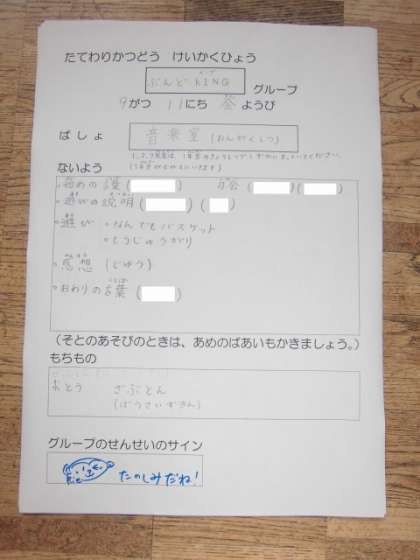 たてわりかつどう けいかくひょう
ぶんどKING グループ
9がつ 11にち ようび
ばしょ 音楽室(おんがくしつ)
ないよう
初めの
遊びの説明
遊び ・なんでもバスケット
・もうじゅうがり
感想(じゆう)
おわりの言葉
(そとのあそびのときは、あめのばあいもかきましょう。)
もちもの
ざぶとん
(ぼうさいずきん)
グループのせんせいのサイン
たのしみだね!